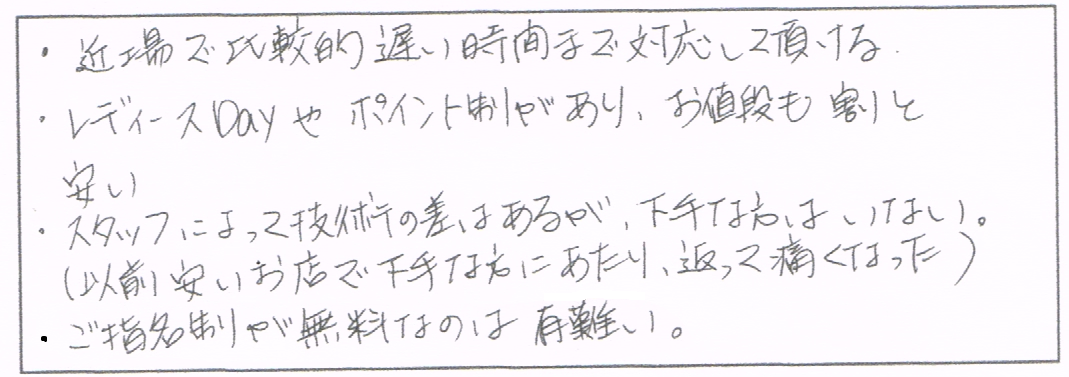 ・近場で比較的遅い時間まで対応して頂ける.
・レディースDayやポイント制りがあり、お値段も割りと
安い
・スタッフによって技術の差はあるが、下手な方はいない。
(以前安いお店で下手な方にあたり、返って痛くなった)
・ご指名制りが無料なのは有難い。